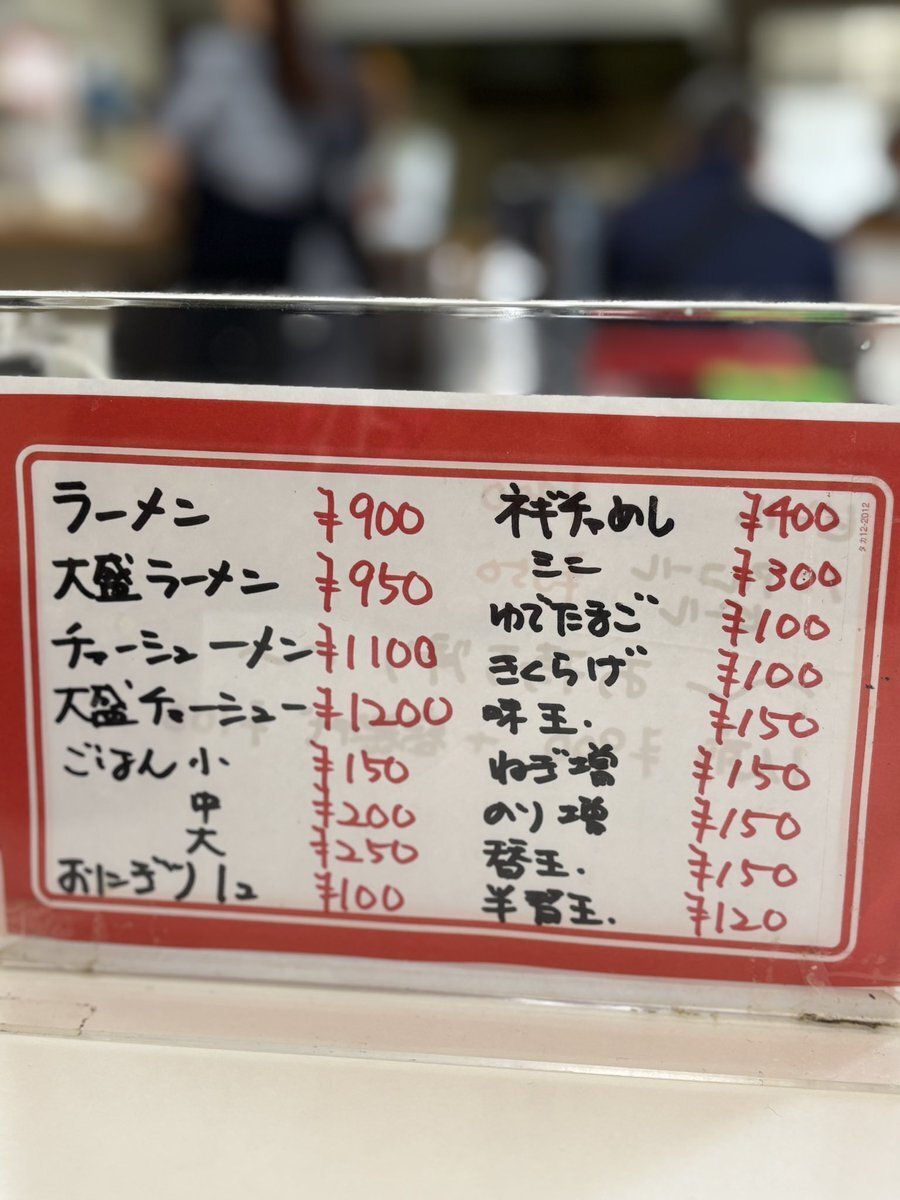 ラーメン ¥900
大盛ラーメン ¥950
チャーシューメン ¥1100
大盛チャーシュー ¥1200
ごはん 小 ¥150
中 ¥200
大 ¥250
おにぎり 1コ ¥100
ネギチャめし ¥400
ミニ ¥300
ゆでたまご ¥100
きくらげ ¥100
味玉. ¥150
ねぎ増 ¥150
のり増 ¥150
替玉. ¥150
半替玉. ¥120
タカ12-2012